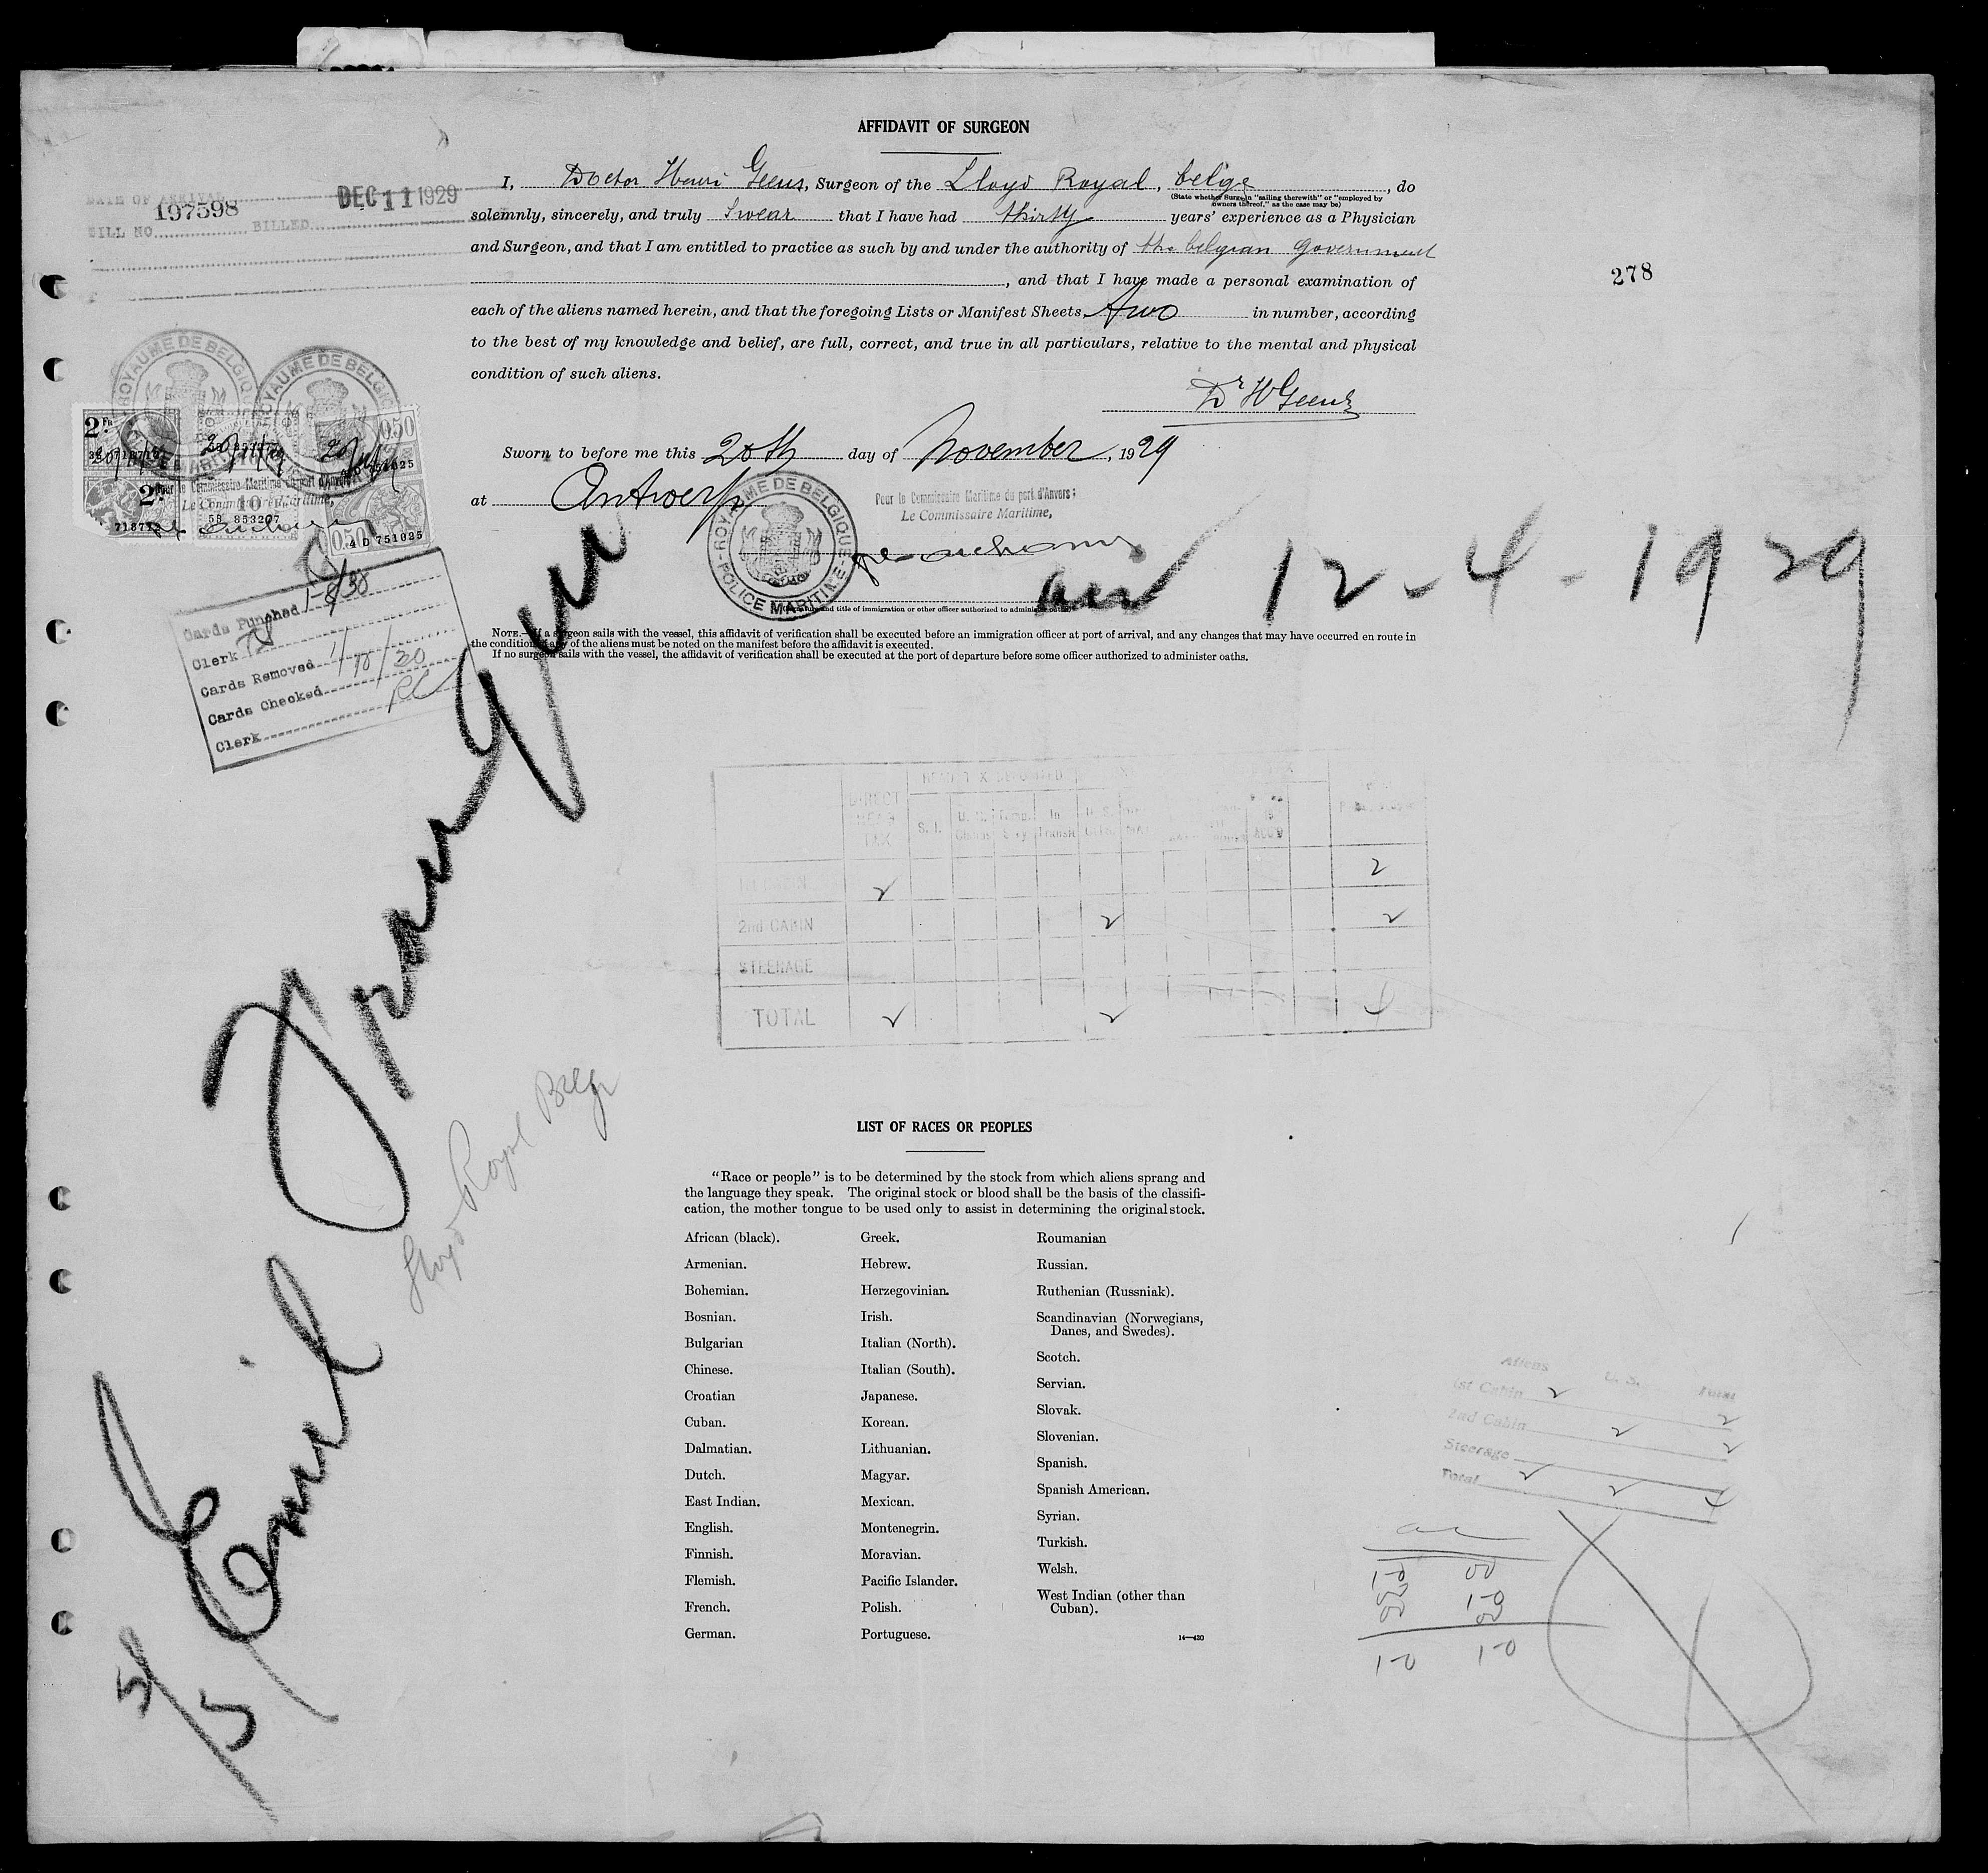 AFFIDAVIT OF SURGEON
I, Doctor Henri Geens, Surgeon of the Lloyd Royal, belge, do
(State whether Surgeon "sailing therewith" or "employed by
owners thereof," as the case may be)
solemnly, sincerely, and truly swear that I have had thirty years' experience as a Physician
and Surgeon, and that I am entitled to practice as such by and under the authority of the belgian government
, and that I have made a personal examination of
each of the aliens named herein, and that the foregoing Lists or Manifest Sheets, two in number, according
to the best of my knowledge and belief, are full, correct, and true in all particulars, relative to the mental and physical
condition of such aliens.
Dr HGeens
Sworn to before me this 20th day of November, 1929
at Antwerp
Pour le Commissaire Maritime du port d'Anvers;
Le Commissaire Maritime,
ROYAUME DE BELGIQUE
POLICE MARITIME
(Signature and title of immigration or other officer authorized to administer oaths)
arr 12-4-1929
NOTE.—If a surgeon sails with the vessel, this affidavit of verification shall be executed before an immigration officer at port of arrival, and any changes that may have occurred en route in
the condition if any of the aliens must be noted on the manifest before the affidavit is executed.
If no surgeon sails with the vessel, the affidavit of verification shall be executed at the port of departure before some officer authorized to administer oaths.
278
DATE OF ARRIVAL
197598
DEC 11 1929
BILL NO. BILLED
ROYAUME DE BELGIQUE
ROYAUME DE BELGIQUE
2 Fr
0.50
20/11/29
2
718712
10
55 853207
0.50
4 D 751025
Pour le Commissaire Maritime du port d'Anvers
Le Commissaire Maritime,
Cards Punched 1-8/30
Clerk
Cards Removed
Cards Checked
Clerk
Emil Francqui
Lloyd Royal Belge
S/S
DIRECT
HEAD
TAX
HEAD TAX DEPOSITED
S. I.
In
Transit
1st CABIN 2 2
2nd CABIN 2 2
STEERAGE
TOTAL 2 2 4
LIST OF RACES OR PEOPLES
"Race or people" is to be determined by the stock from which aliens sprang and
the language they speak. The original stock or blood shall be the basis of the classifi-
cation, the mother tongue to be used only to assist in determining the original stock.
African (black).
Armenian.
Bohemian.
Bosnian.
Bulgarian
Chinese.
Croatian
Cuban.
Dalmatian.
Dutch.
East Indian.
English.
Finnish.
Flemish.
French.
German.
Greek.
Hebrew.
Herzegovinian.
Irish.
Italian (North).
Italian (South).
Japanese.
Korean.
Lithuanian.
Magyar.
Mexican.
Montenegrin.
Moravian.
Pacific Islander.
Polish.
Portuguese.
Roumanian
Russian.
Ruthenian (Russniak).
Scandinavian (Norwegians,
Danes, and Swedes).
Scotch.
Servian.
Slovak.
Slovenian.
Spanish.
Spanish American.
Syrian.
Turkish.
Welsh.
West Indian (other than
Cuban).
14—430
Aliens U. S. Total
1st Cabin 2 2
2nd Cabin 2 2
Steerage
Total 2 2 4